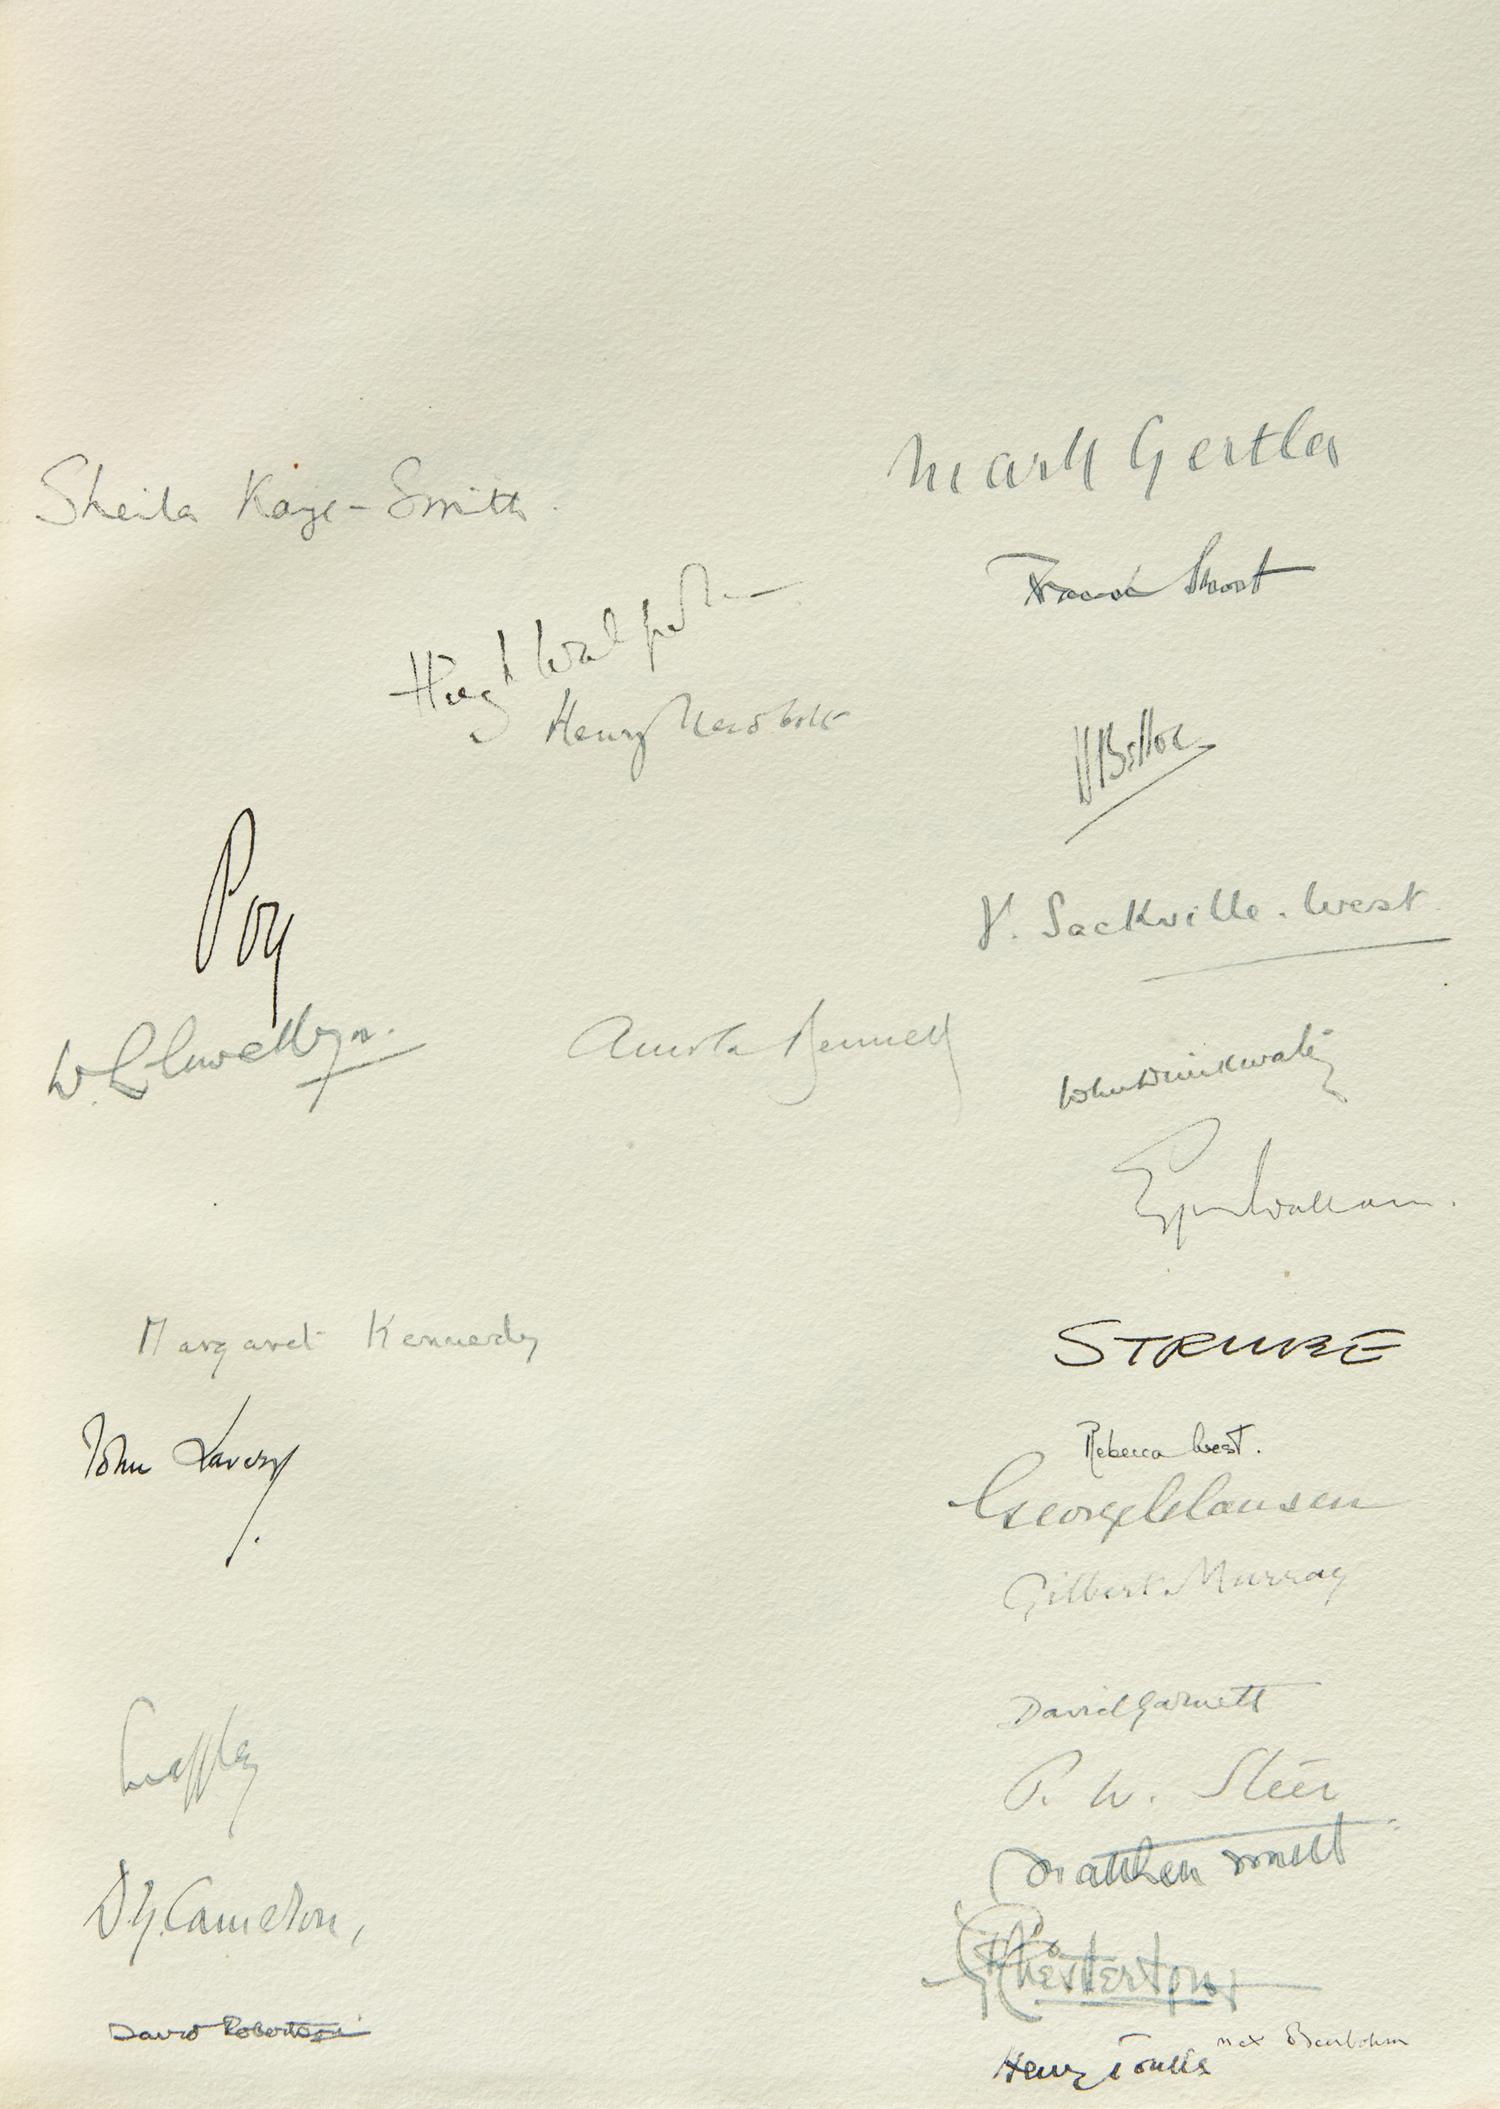 Mark Gertler
Sheila Kaye-Smith.
Frank Short
Hugh Walpole
Henry Newbolt
H Belloc
Poy
V. Sackville-West
W. Llewellyn.
Arnold Bennett
John Drinkwater
Margaret Kennedy
STRUBE
John Lavery
Rebecca West.
George Clausen
Gilbert Murray
David Garnett
P. W. Steer
Matthew Smith
D.Y. Cameron,
GK Chesterton
David Robertson
Max Beerbohm
Henry Tonks